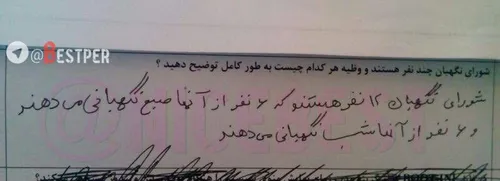 @BESTPER
شورای نگهبان چند نفر هستند و وظیه هر کدام چیست به طور کامل توضیح دهید ؟
شورای نگهبان ۱۲ نفر هستند که ۶ نفر از آنها صبح نگهبانی می دهند
و ۶ نفر از آنها شب نگهبانی می دهند